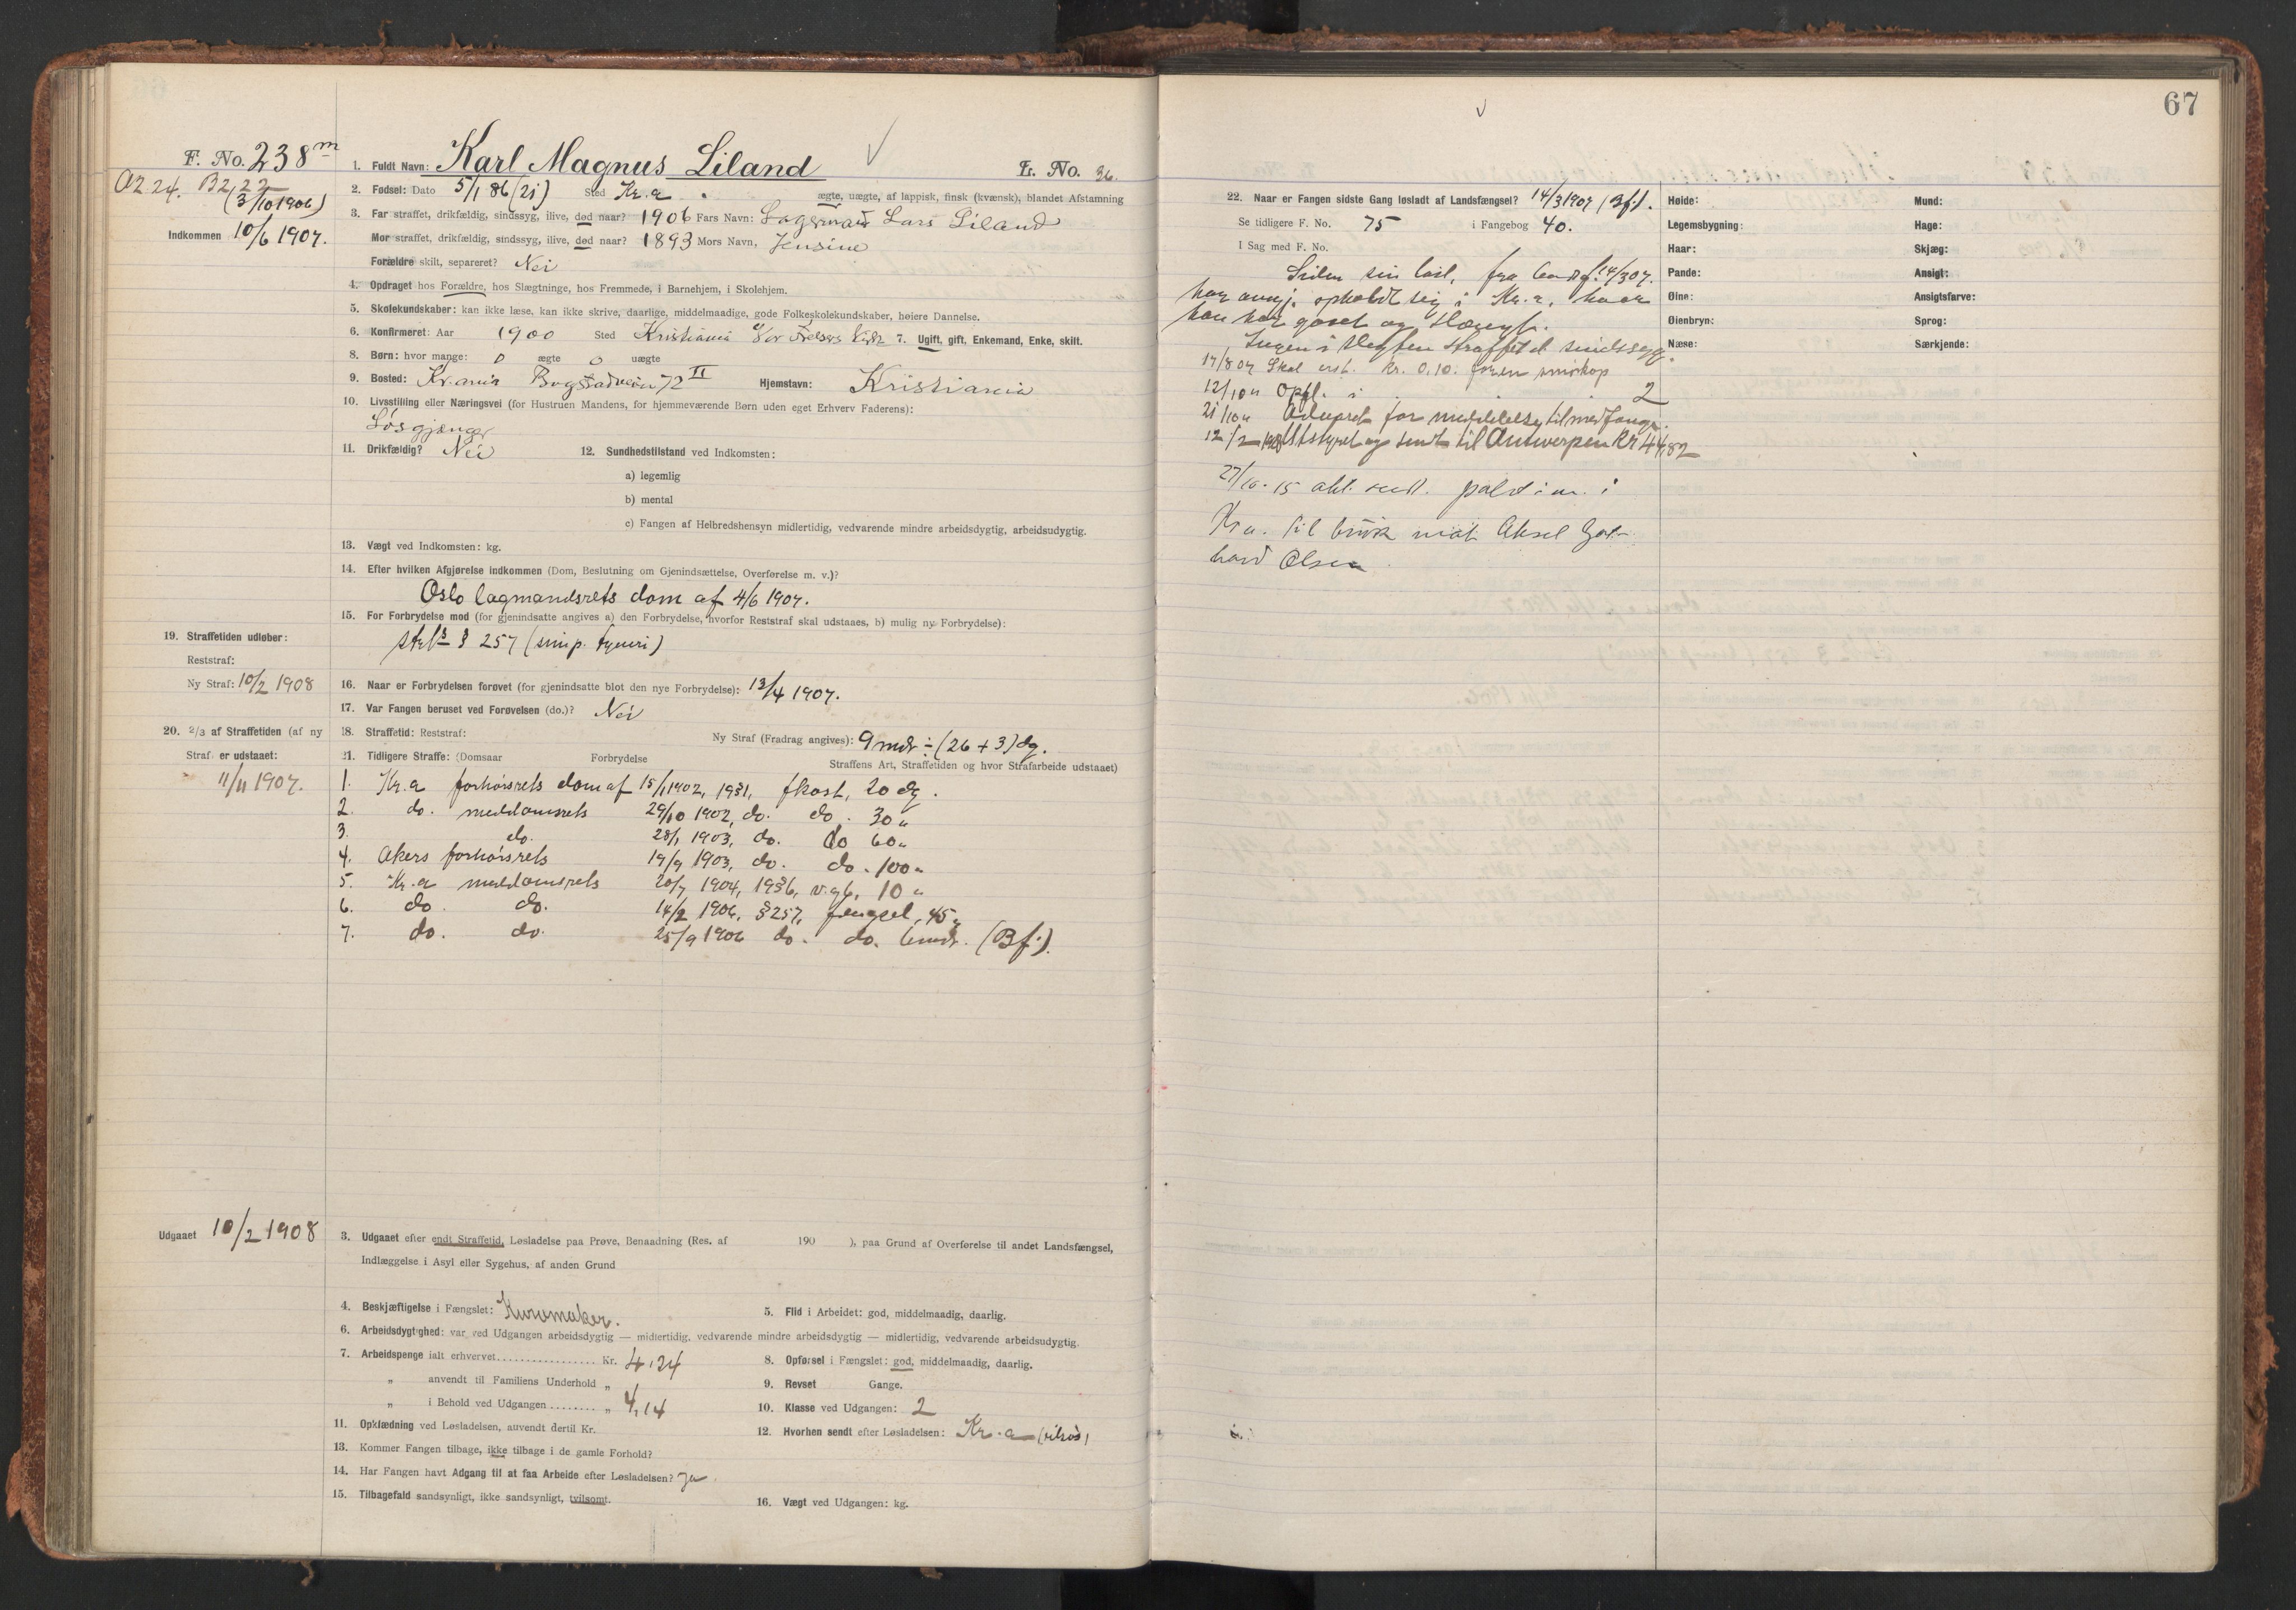 67
F. No. 238 m
A2 24. B2, 22
(3/10 1906)
Indkommen 10/6 1907.
1. Fuldt Navn: Karl Magnus Liland
L. No. 36.
2. Fødsel: Dato 5/1 86 (21) Sted Kr.a ægte, uægte, af lappisk, finsk (kvænsk), blandet Afstamning
3. Far straffet, drikfældig, sindssyg, ilive, død naar? 1906 Fars Navn: Lagermand Lars Liland
Mor straffet, drikfældig, sindssyg, ilive, død naar? 1893 Mors Navn, Jensine
Forældre skilt, separeret? Nei
4. Opdraget hos Forældre, hos Slægtninge, hos Fremmede, i Barnehjem, i Skolehjem.
5. Skolekundskaber: kan ikke læse, kan ikke skrive, daarlige, middelmaadige, gode Folkeskolekundskaber, høiere Dannelse.
6. Konfirmeret: Aar 1900 Sted Kristiania Vor Frelsers Kirke 7. Ugift, gift, Enkemand, Enke, skilt.
8. Børn: hvor mange: 0 ægte 0 uægte
9. Bosted: Kr.ania Bogstadveien 72 II Hjemstavn: Kristiania
10. Livsstilling eller Næringsvei (for Hustruen Mandens, for hjemmeværende Børn uden eget Erhverv Faderens):
Løsgjænger
11. Drikfældig? Nei 12. Sundhedstilstand ved Indkomsten:
a) legemlig
b) mental
c) Fangen af Helbredshensyn midlertidig, vedvarende mindre arbeidsdygtig, arbeidsudygtig.
13. Vægt ved Indkomsten: kg.
14. Efter hvilken Afgjørelse indkommen (Dom, Beslutning om Gjenindsættelse, Overførelse m. v.)?
Oslo lagmandsrets dom af 4/6 1907.
15. For Forbrydelse mod (for gjenindsatte angives a) den Forbrydelse, hvorfor Reststraf skal udstaaes, b) mulig ny Forbrydelse):
strl's § 257 (simp. tyveri)
19. Straffetiden udløber:
Reststraf:
Ny Straf: 10/2 1908
16. Naar er Forbrydelsen forøvet (for gjenindsatte blot den nye Forbrydelse): 13/4 1907.
17. Var Fangen beruset ved Forøvelsen (do.)? Nei
20. 2/3 af Straffetiden (af ny
Straf) er udstaaet:
11/11 1907.
18. Straffetid: Reststraf: Ny Straf (Fradrag angives): 9 mdr ÷ (26 + 3) dg.
21. Tidligere Straffe: (Domsaar Forbrydelse Straffens Art, Straffetiden og hvor Strafarbeide udstaaet)
1. Kr.a forhørsrets dom af 15/1 1902, 1931, fkost, 20 dg.
2. do. meddomsrets 29/10 1902, do. do. 30 "
3. do. 28/1 1903, do. do 60 "
4. Akers forhørsrets 19/9 1903, do. do. 100 "
5. Kr.a meddomsrets 20/7 1904, 1936, v.gb, 10 "
6. do. do. 14/2 1906, § 257, fængsel, 45 "
7. do. do. 25/9 1906 do. do. 6 mdr. (Bf.).
Udgaaet 10/2 1908
3. Udgaaet efter endt Straffetid, Løsladelse paa Prøve, Benaadning (Res. af 190 ), paa Grund af Overførelse til andet Landsfængsel,
Indlæggelse i Asyl eller Sygehus, af anden Grund
4. Beskjæftigelse i Fængslet: Kurvmaker. 5. Flid i Arbeidet: god, middelmaadig, daarlig.
6. Arbeidsdygtighed: var ved Udgangen arbeidsdygtig — midlertidig, vedvarende mindre arbeidsdygtig — midlertidig, vedvarende arbeidsudygtig.
7. Arbeidspenge ialt erhvervet Kr. 4,24 8. Opførsel i Fængslet: god, middelmaadig, daarlig.
" anvendt til Familiens Underhold " 9. Revset Gange.
" i Behold ved Udgangen " 4,14 10. Klasse ved Udgangen: 2
11. Opklædning ved Løsladelsen, anvendt dertil Kr. 12. Hvorhen sendt efter Løsladelsen: Kr.a
13. Kommer Fangen tilbage, ikke tilbage i de gamle Forhold?
14. Har Fangen havt Adgang til at faa Arbeide efter Løsladelsen? Ja
15. Tilbagefald sandsynligt, ikke sandsynligt, tvilsomt. 16. Vægt ved Udgangen: kg.
22. Naar er Fangen sidste Gang løsladt af Landsfængsel? 14/3 1907 (Bf.).
Se tidligere F. No. 75 i Fangebog 40.
I Sag med F. No.
Siden sin løsl. fra Landsf. 14/3 07.
har opholdt sig i Kr.a, hvor
han har gaaet og slængt.
Ingen i slegten straffet el sindssyg.
17/8 07 Skal erst. kr. 0,10. for en
12/10 " Opfl. i 2
21/10 " Advaret for meddelelse til medfange.
12/2 1908 Utstyret og sendt til Antwerpen Kr 44,82
27/10-15 akt. sendt. poldim. i
Kra. til bruk mot Aksel Got-
hard Olsen
Høide:
Legemsbygning:
Haar:
Pande:
Øine:
Øienbryn:
Næse:
Mund:
Hage:
Skjæg:
Ansigt:
Ansigtsfarve:
Sprog:
Særkjende: